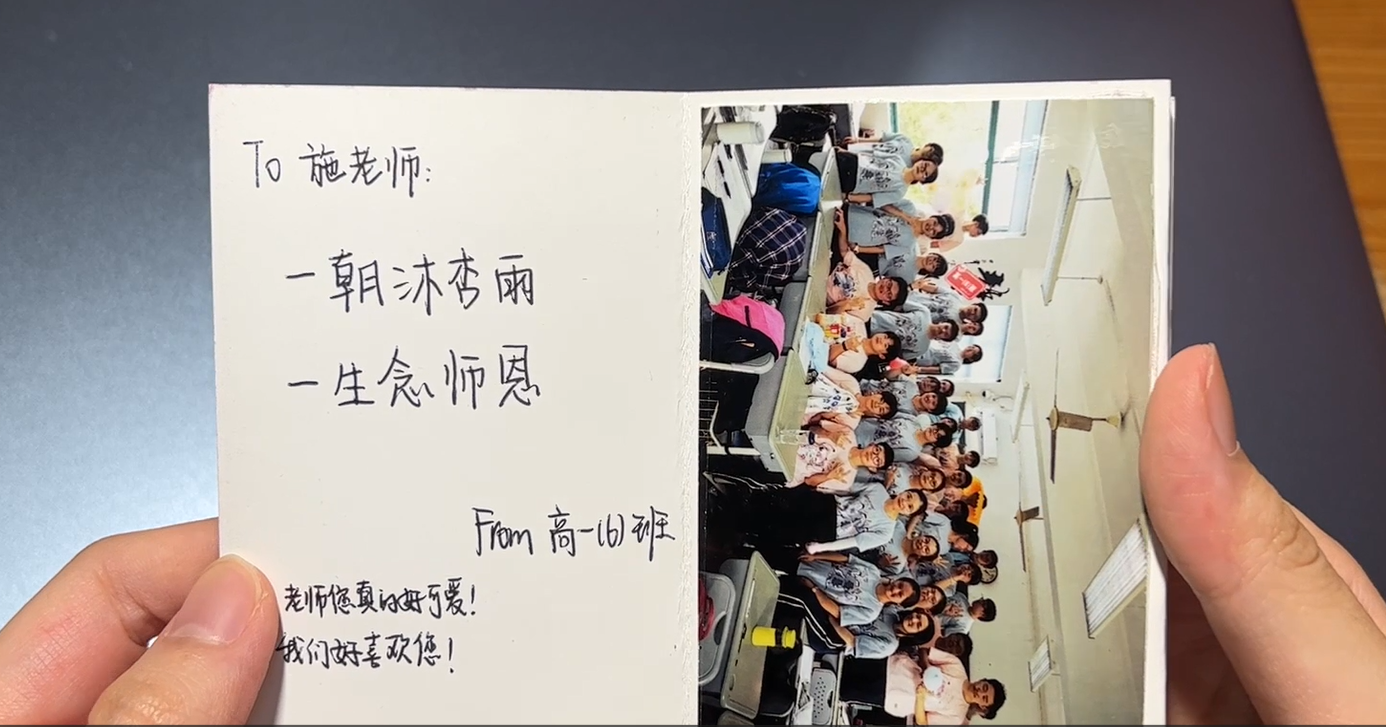 To 施老师:
一朝沐杏雨
一生念师恩
From 高一(6)班
老师您真的好可爱!
我们好喜欢您!